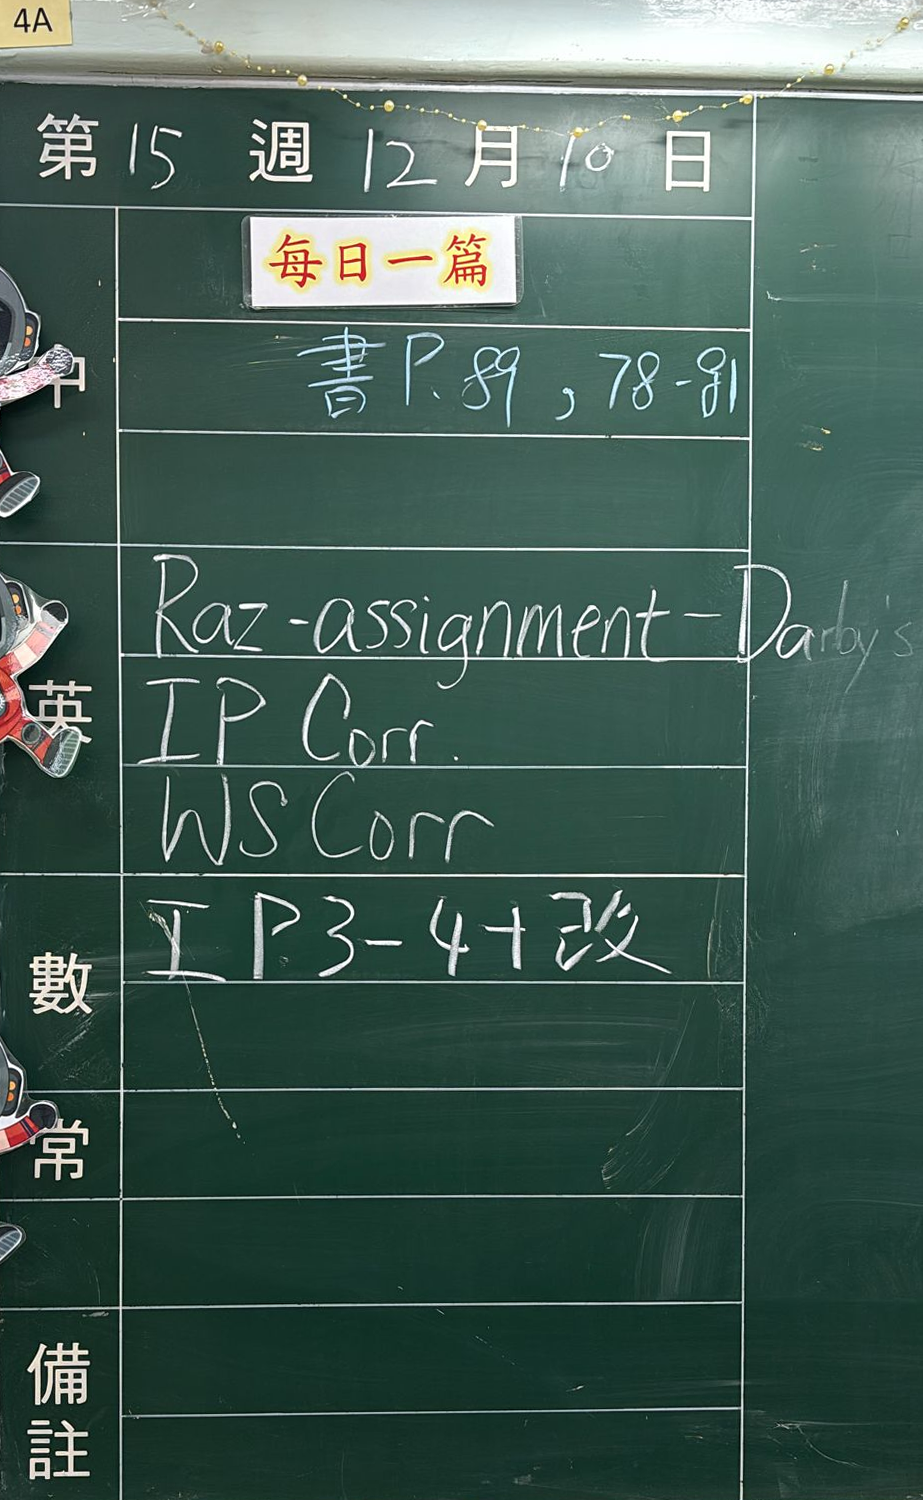 4A
第 15 週 12 月 10 日
每日一篇
中
書 P. 89 , 78-81
Raz-assignment-Darby's
英
IP Corr.
WS Corr
數
I P.3-4+改
常
備註